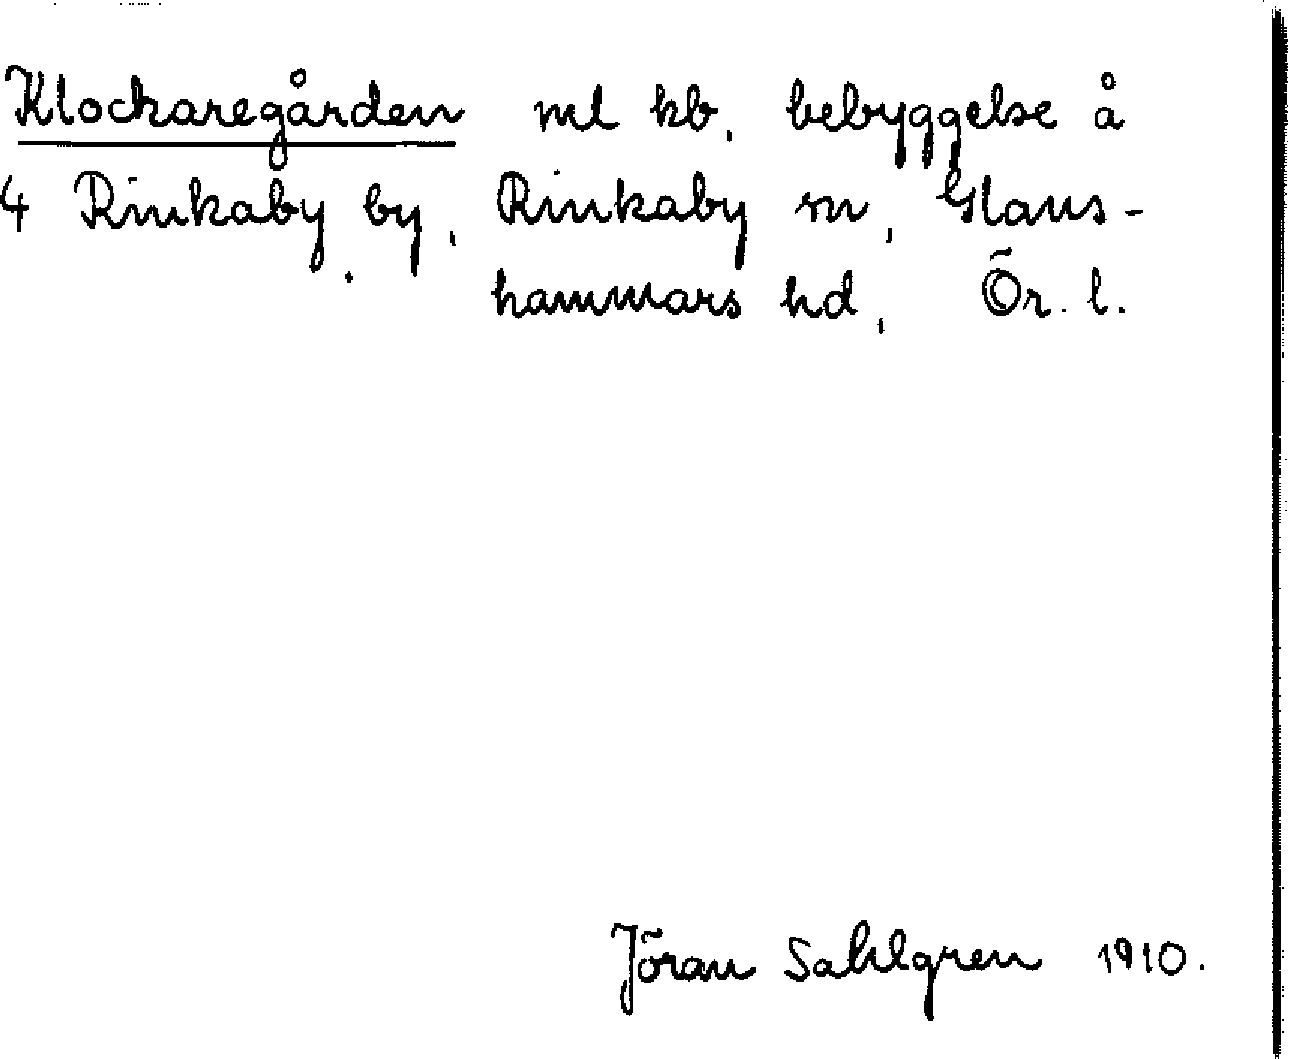 Klockaregården ml kb, bebyggelse å
4 Rinkaby by, Rinkaby sn, Glans-
hammars hd, Ör. l.
Jöran Sahlgren 1910.